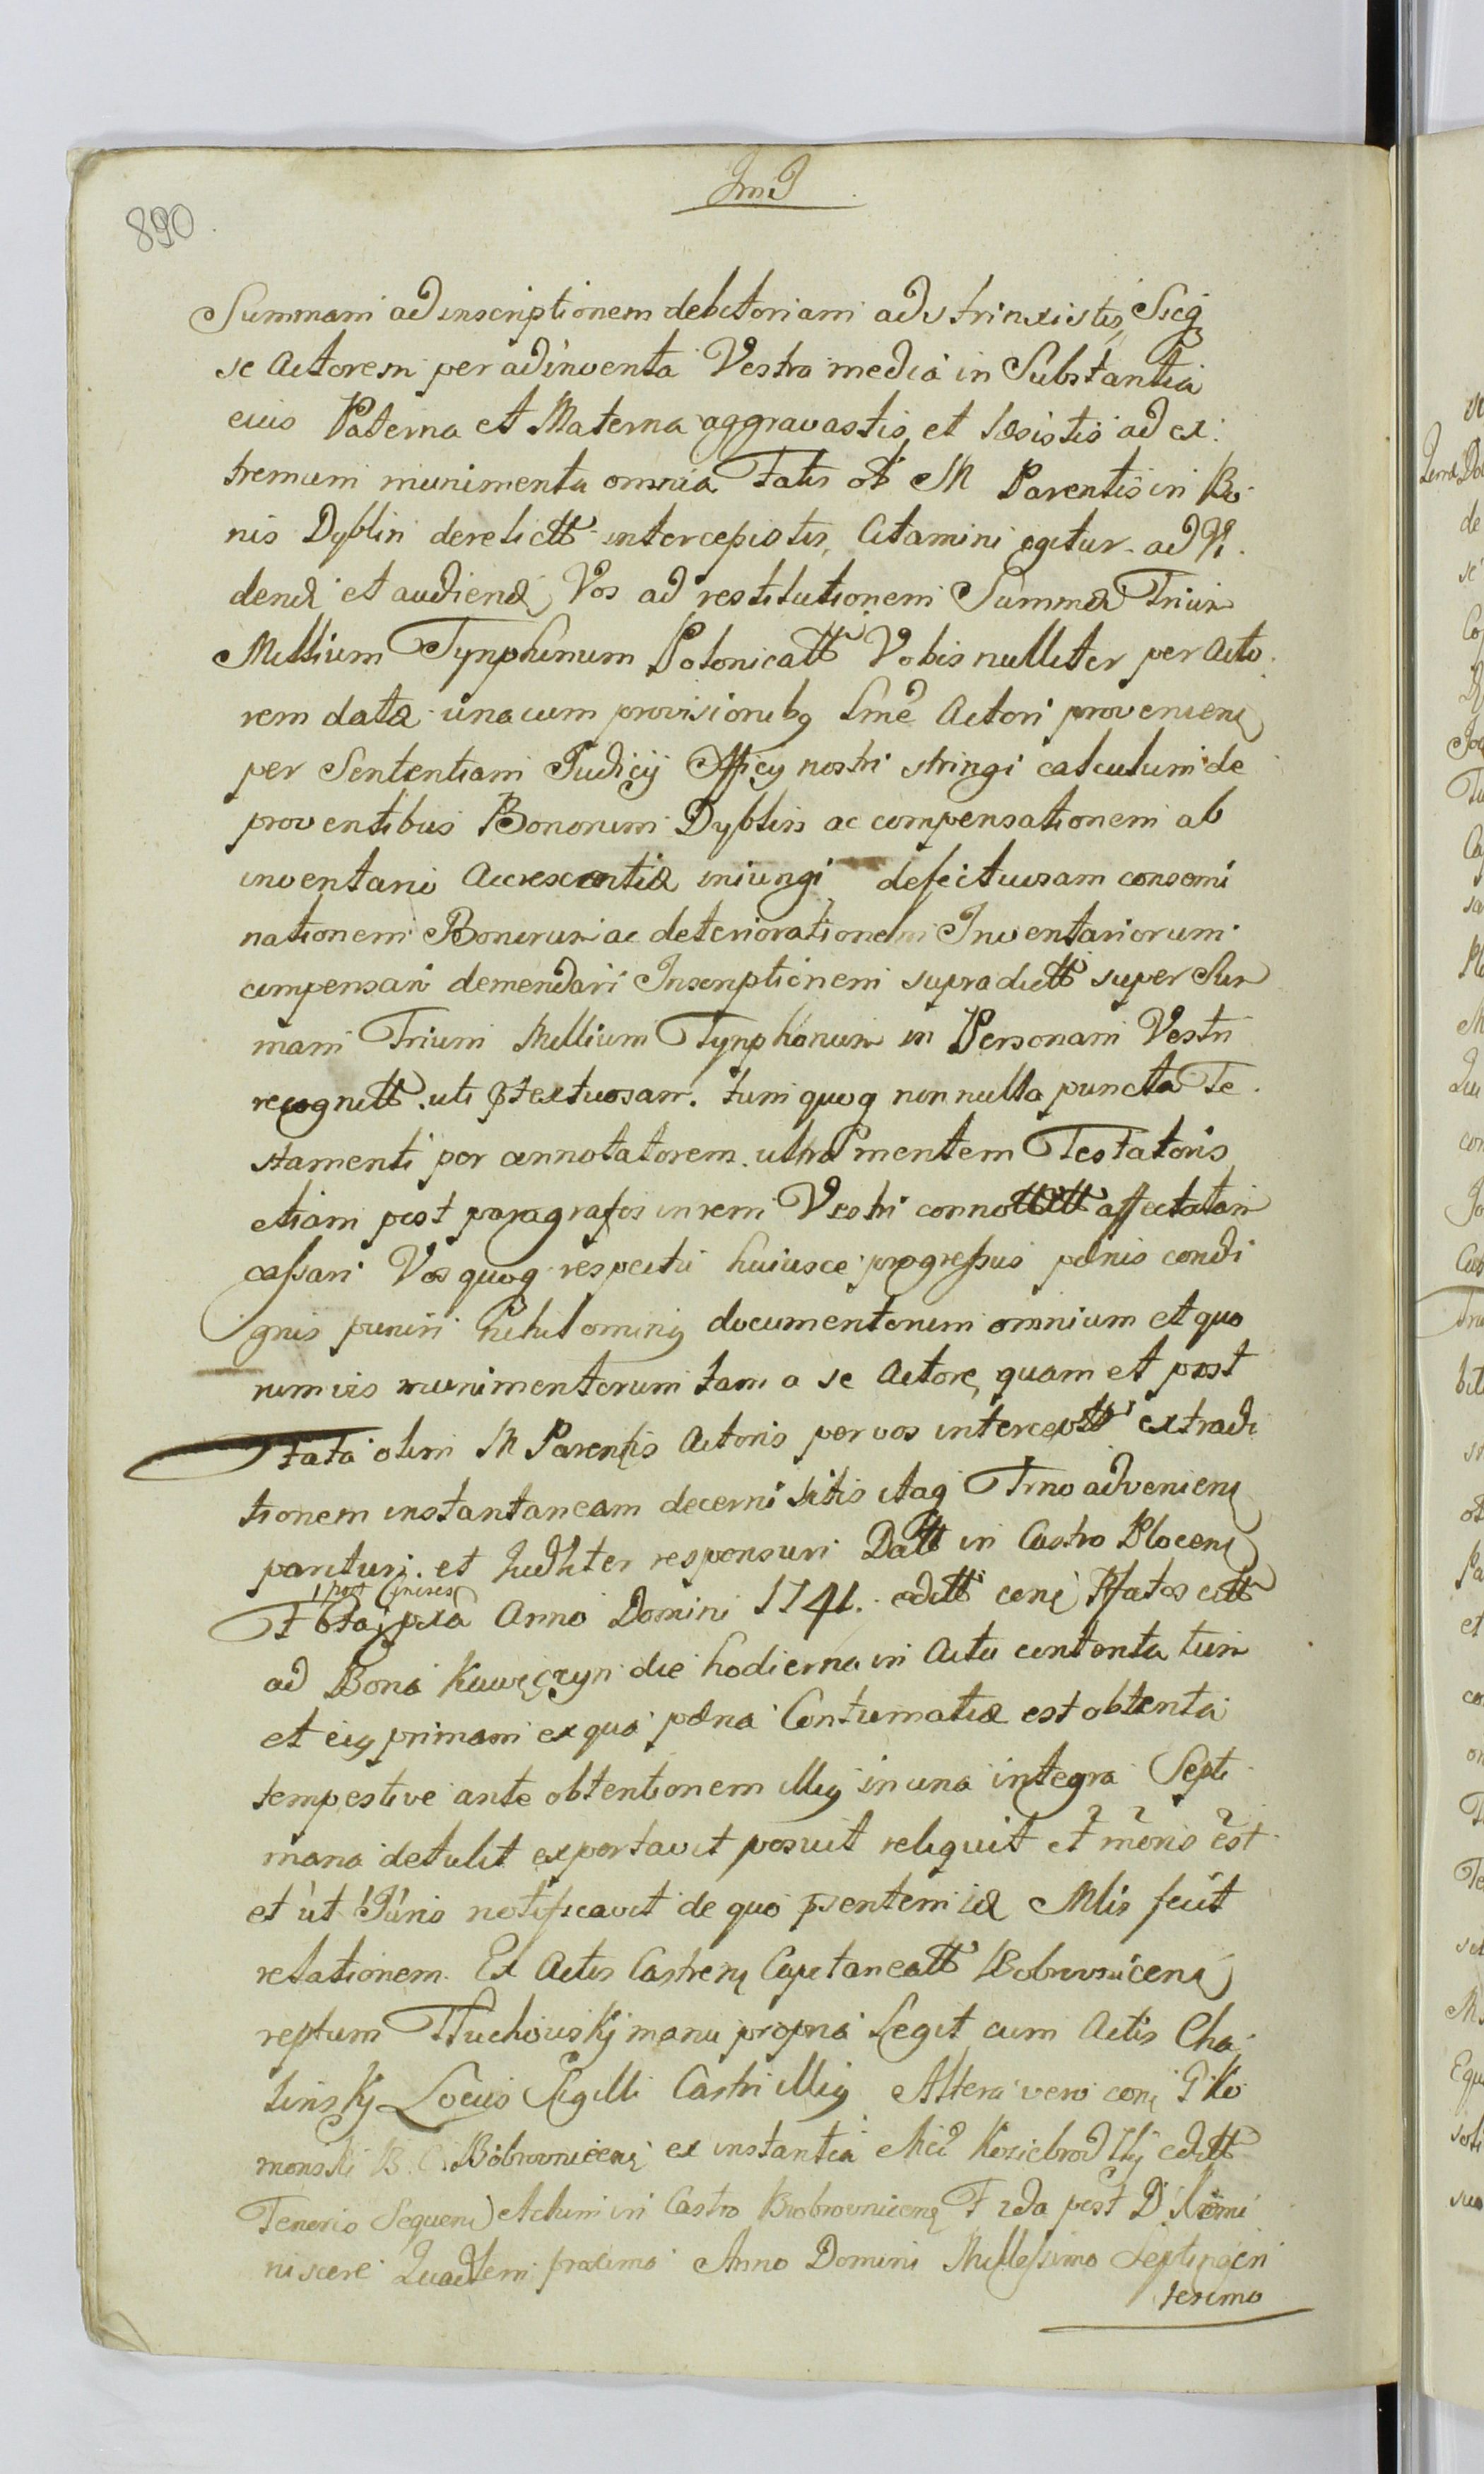 890
Summam ad inscriptionem debitoriam adstrinxistis, Sicq
se Actorem per adinventa Vestra media in Substantia
eius Paterna et Materna aggravastis, et læsistis ad ex:
tremum munimenta omnia Fatis M Parentis in Bo
nis Dyblin derelictt intercepistis, Citamini igitur ad Vi
dend et audiend Vos ad restitutionem Summæ Trium
Millium Tynphonum Polonicatt Vobis nulliter per Acto
rem datæ unacum provisionibq Actori provenien
per Sententiam Judicij Officij nostri stringi calculum de
proventibus Bonorum Dyblin ac compensationem ab
inventario Accrescentiæ iniungi defectuosam consemi
nationem Bonorum ac deteriorationem Inventariorum
compensari demendari Inscriptionem supradictt super Sum
mam Trium Millium Tynphonum in Personam Vestri
recognitt uti ptextuosam. tum quoq nonnulla puncta Te
stamenti per connotatorem ultra mentem Testatoris
etiam post paragrafos in rem Vestri affectatam
cassari Vos quoq respectu huiusce progressus pœnis condi
gnis puniri Nihilominq documentorum omnium et quo
rumvis munimentorum tam a se Actore, quam et post
Fata olim M Parentis Actoris per vos interceptt extradi
tionem instantaneam decerni Sitis itaq Trno advenien
parituri. et Judlter responsuri Datt in Castro Plocen
post Cineres
F pxa Anno Domini 1741. edtt Pfatos citt
ad Bona Kawęczyn die hodierna in Actu contenta tum
et eiq primam ex qua pœna Contumatiæ est obtenta
tempestive ante obtentionem illiq in una integra Septi
mana detulit exportavit posuit reliquit et moris est
et ut Juris notificavit de quo psentem id Mlis fecit
relationem. Ex Actis Castren Capitaneatt Bobrovnicen
reptum Tłuchowskj manu propria Legit cum Actis Cha
linskj Locus Sigilli Castri illiq Altera vero G Ko
monski B. C. Bobrovnicen ex instantia Koziebrodzkj
Tenoris Sequen) Actum in Castro Bobrovnicen F 2da post D Remi
niscere proximo Anno Domini Millessimo Septingen
tesimo